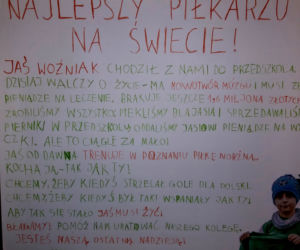 NAJLEPSZY PIŁKARZU
NA ŚWIECIE!
JAŚ WOŹNIAK CHODZIŁ Z NAMI DO PRZEDSZKOLA.
DZISIAJ WALCZY O ŻYCIE - MA NOWOTWÓR MÓZGU I MUSI
PIENIĄDZE NA LECZENIE. BRAKUJE JESZCZE 1,6 MILJONA ZŁOTYCH
ZROBILIŚMY WSZYSTKO PIEKLIŚMY DLA JASIA I SPRZEDAWALIŚM
PIERNIKI W PRZEDSZKOLU ODDALIŚMY JASIOWI PIENIĄDZE NA W
CZKI. ALE TO CIĄGLE ZA MAŁO!
JAŚ OD DAWNA TRENUJE W POZNANIU PIŁKĘ NOŻNĄ.
KOCHA JĄ - TAK JAK TY!
CHCEMY, ŻEBY KIEDYŚ STRZELAŁ GOLE DLA POLSKI.
CHCEMY ŻEBY KIEDYŚ BYŁ TAKI WSPANIAŁY JAK TY!
ABY TAK SIĘ STAŁO JAŚ MUSI ŻYĆ.
BŁAGAMY! POMÓŻ NAM URATOWAĆ NASZEGO KOLEGĘ.
JESTEŚ NASZĄ OSTATNIĄ NADZIEJĄ!